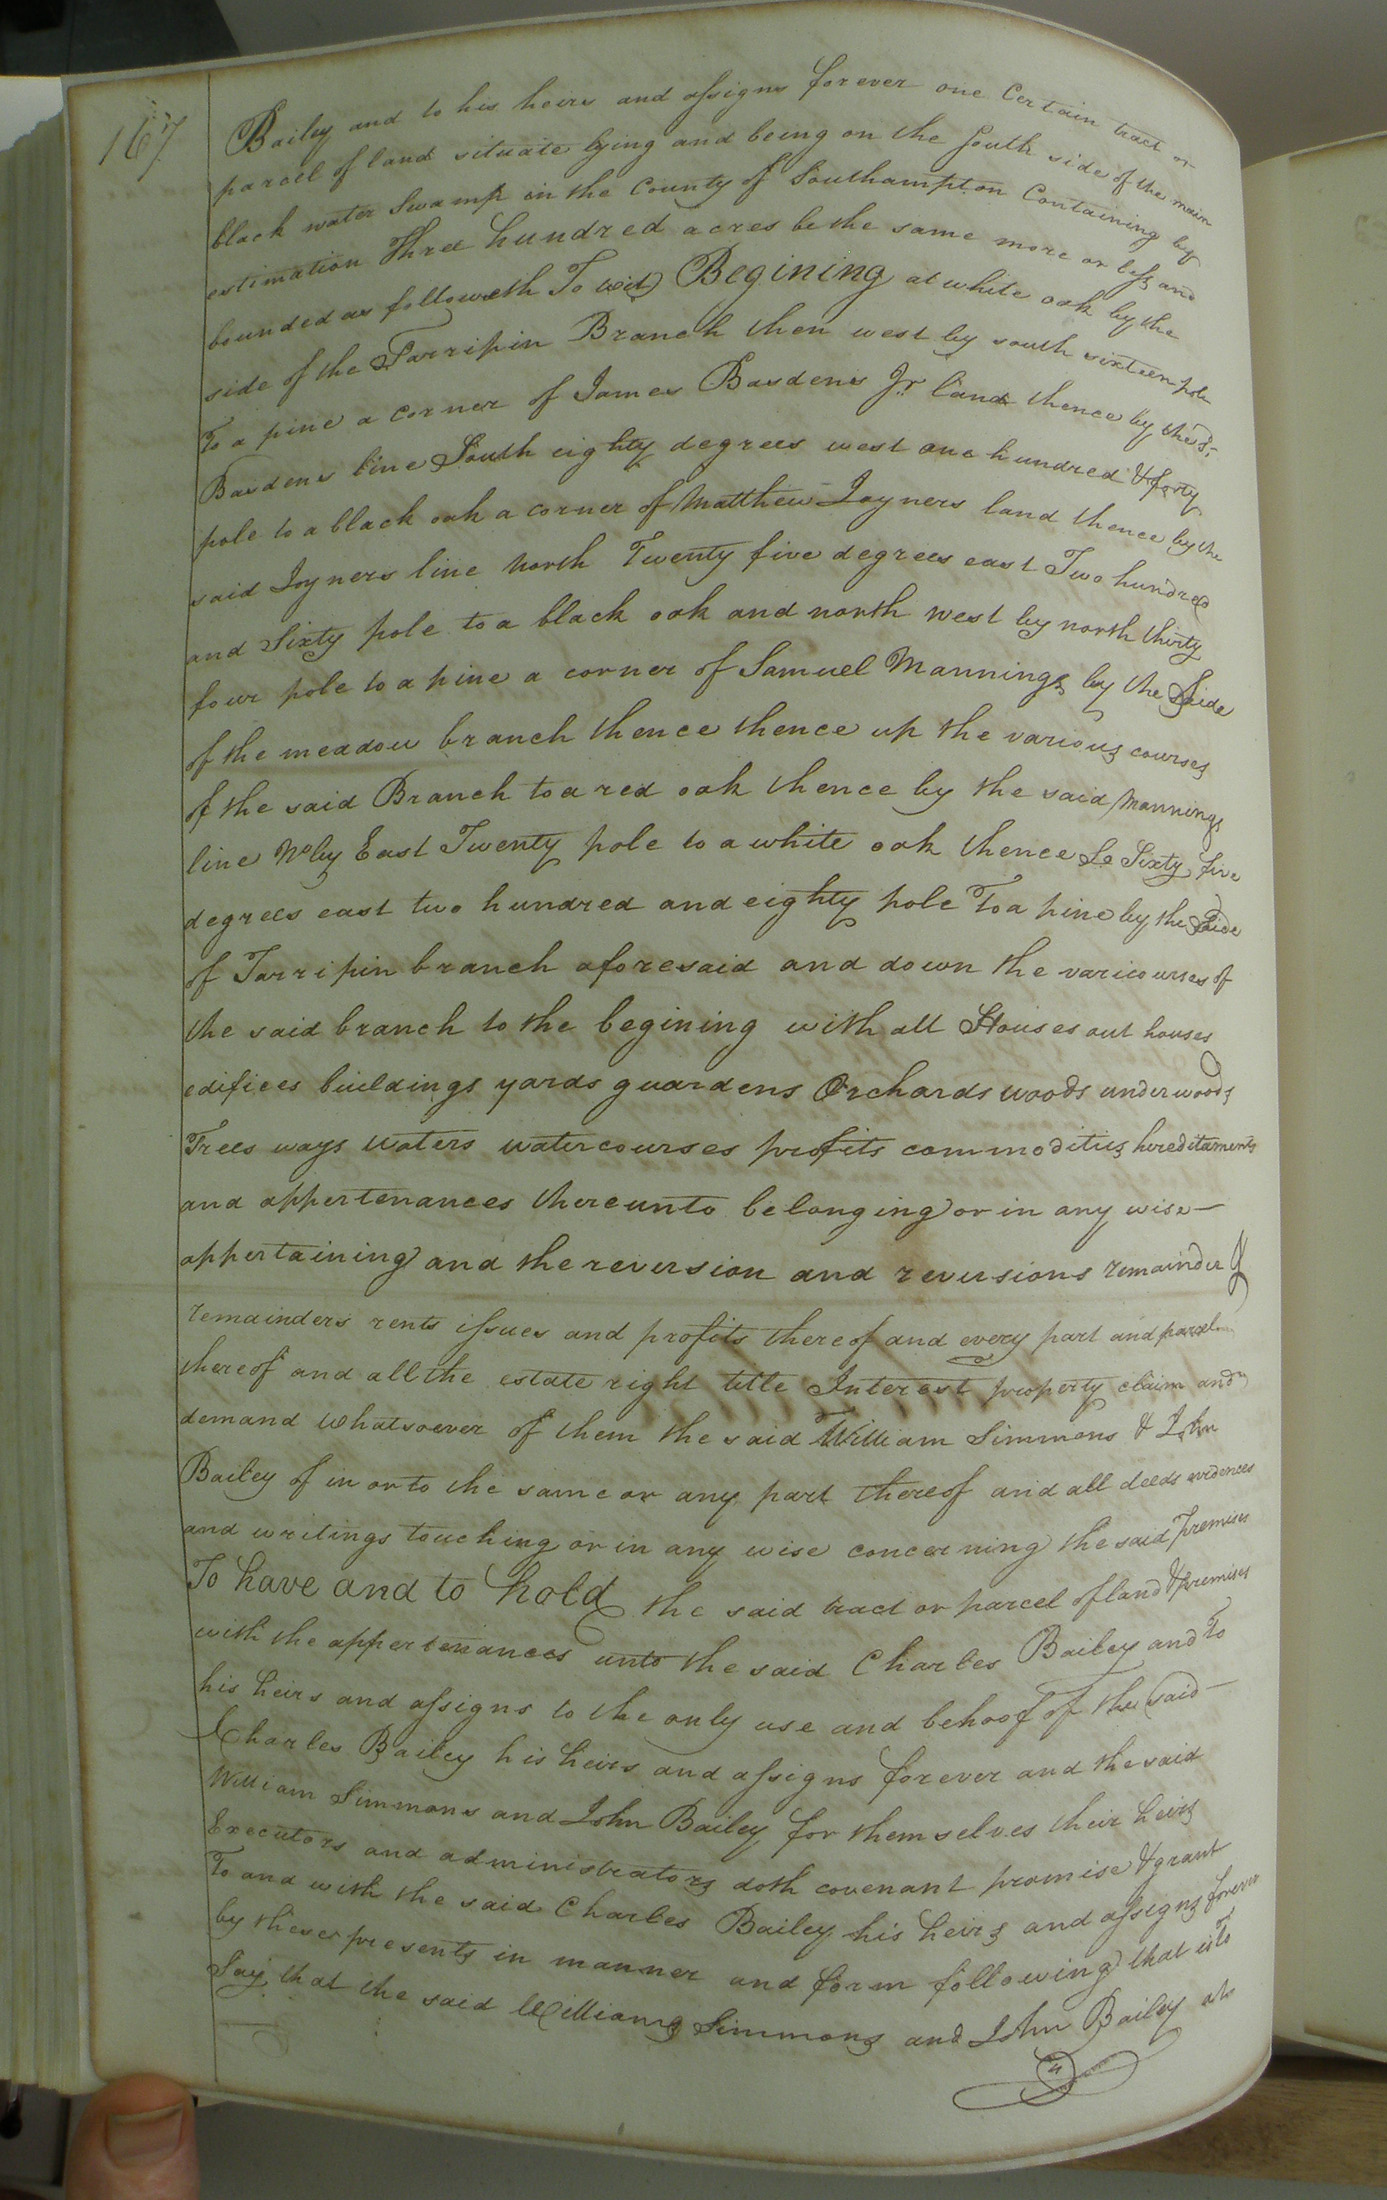 167
Bailey and to his heirs and assigns forever one Certain tract or
parcel of land situate lying and being on the South side of the main
black water Swamp in the County of Southampton Containing by
estimation Three hundred acres be the same more or less and
bounded as followeth To wit) Begining at white oak by the
side of the Tarripin Branch then west by south sixteen pole
To a pine a corner of James Basdens Jr. land thence by the sd.
Basdens line South eighty degrees west one hundred & forty
pole to a black oak a corner of Matthew Joyners land thence by the
said Joyners line North Twenty five degrees east Two hundred
and Sixty pole to a black oak and north west by north thirty
four pole to a pine a corner of Samuel Mannings by the Side
of the meadow branch thence thence up the various courses
of the said Branch to a red oak thence by the said Mannings
line No by East Twenty pole to a white oak thence So Sixty five
degrees east two hundred and eighty pole To a pine by the Side
of Tarripin branch aforesaid and down the varicourses of
the said branch to the begining with all Houses out houses
edifices buildings yards guardens Orchards woods underwoods
Trees ways waters watercourses profits commodities hereditaments
and appertenances thereunto belonging or in any wise
appertaining and the reversion and reversions remainder &
remainders rents issues and profits thereof and every part and parcel
thereof and all the estate right title Interest property claim and
demand whatsoever of them the said William Simmons & John
Bailey of in or to the same or any part thereof and all deeds evidences
and writings touching or in any wise concerning the said Premises
To have and to hold the said tract or parcel of land & premises
with the appertenances unto the said Charles Bailey and To
his heirs and assigns to the only use and behoof of the said
Charles Bailey his heirs and assigns forever and the said
William Simmons and John Bailey for themselves their heirs
Executors and administrators doth covenant promise & grant
To and with the said Charles Bailey his heirs and assigns forever
by these presents in manner and form following that is To
Say, that the said Williams Simmons and John Bailey at